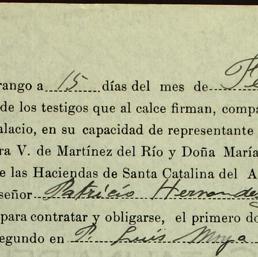 rango a 15 días del mes de Fe
de los testigos que al calce firman, compa
alacio, en su capacidad de representante
ra V. de Martínez del Río y Doña María
e las Haciendas de Santa Catalina del A
señor Patricio Hernandez
para contratar y obligarse, el primero do
segundo en P. Luis Moya